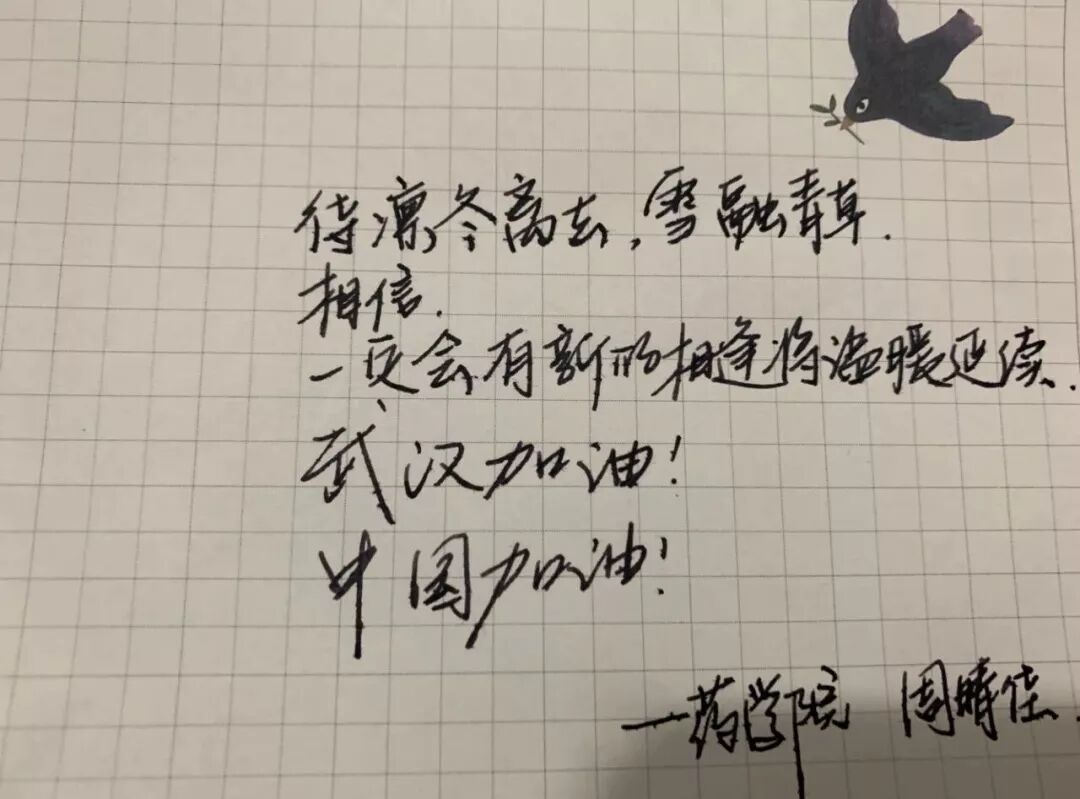 待凛冬离去,雪融青草.
相信.
一定会有新的相逢将温暖延续.
武汉加油!
中国加油!
—药学院 周晴佳.